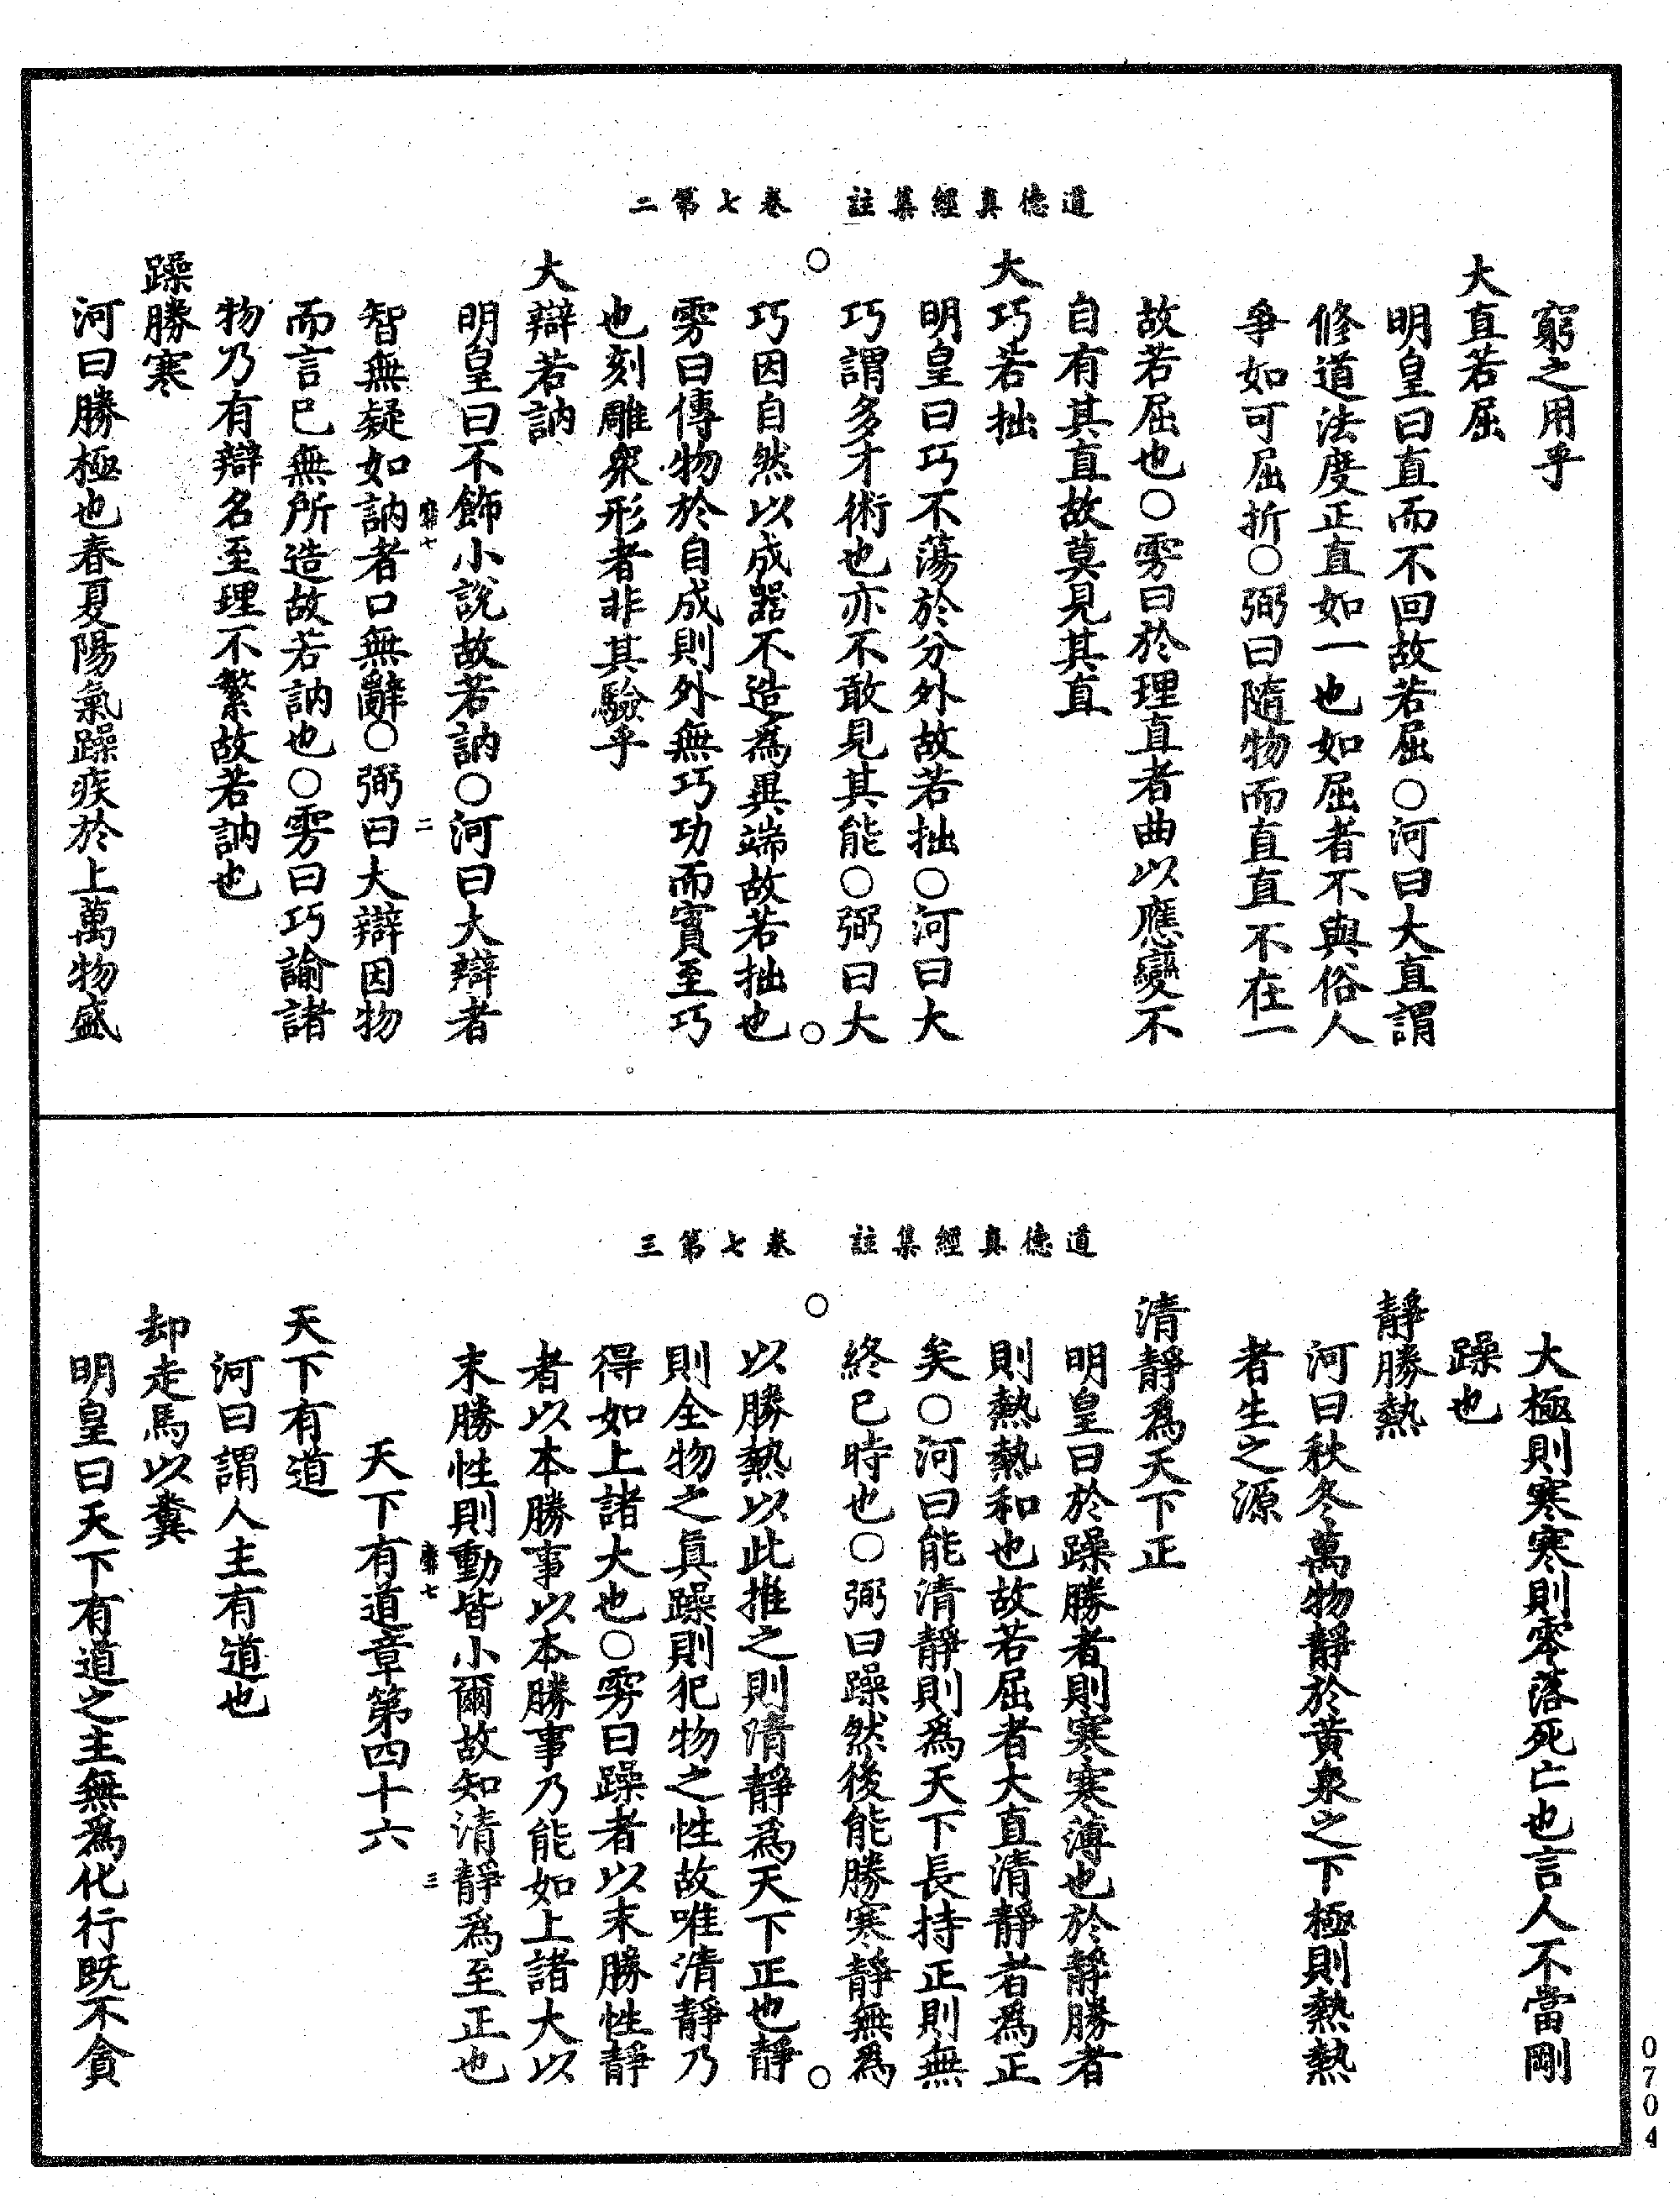 道德真經集註　卷七第二
窮之用乎
大直若屈
明皇曰直而不回故若屈○河曰大直謂
修道法度正直如一也如屈者不與俗人
爭如可屈折○弼曰隨物而直直不在一
故若屈也○雱曰於理直者曲以應變不
自有其直故莫見其直
大巧若拙
明皇曰巧不蕩於分外故若拙○河曰大
巧謂多才術也亦不敢見其能○弼曰大
巧因自然以成器不造爲異端故若拙也
雱曰傳物於自成則外無巧功而實至巧
也刻雕衆形者非其驗乎
大辯若訥
明皇曰不飾小說故若訥○河曰大辯者
智無疑如訥者口無辭○弼曰大辯因物
而言已無所造故若訥也○雱曰巧諭諸
物乃有辯名至理不繁故若訥也
躁勝寒
河曰勝極也春夏陽氣躁疾於上萬物盛
道德真經集註　卷七第三
大極則寒寒則零落死亡也言人不當剛
躁也
靜勝熱
河曰秋冬萬物靜於黃泉之下極則熱熱
者生之源
清靜爲天下正
明皇曰於躁勝者則寒寒薄也於靜勝者
則熱熱和也故若屈者大直清靜者爲正
矣○河曰能清靜則爲天下長持正則無
終已時也○弼曰躁然後能勝寒靜無爲
以勝熱以此推之則清靜爲天下正也靜
則全物之眞躁則犯物之性故唯清靜乃
得如上諸大也○雱曰躁者以末勝性靜
者以本勝事以本勝事乃能如上諸大以
末勝性則動皆小爾故知清靜爲至正也
天下有道章第四十六
天下有道
河曰謂人主有道也
却走馬以糞
明皇曰天下有道之主無爲化行既不貪
0704